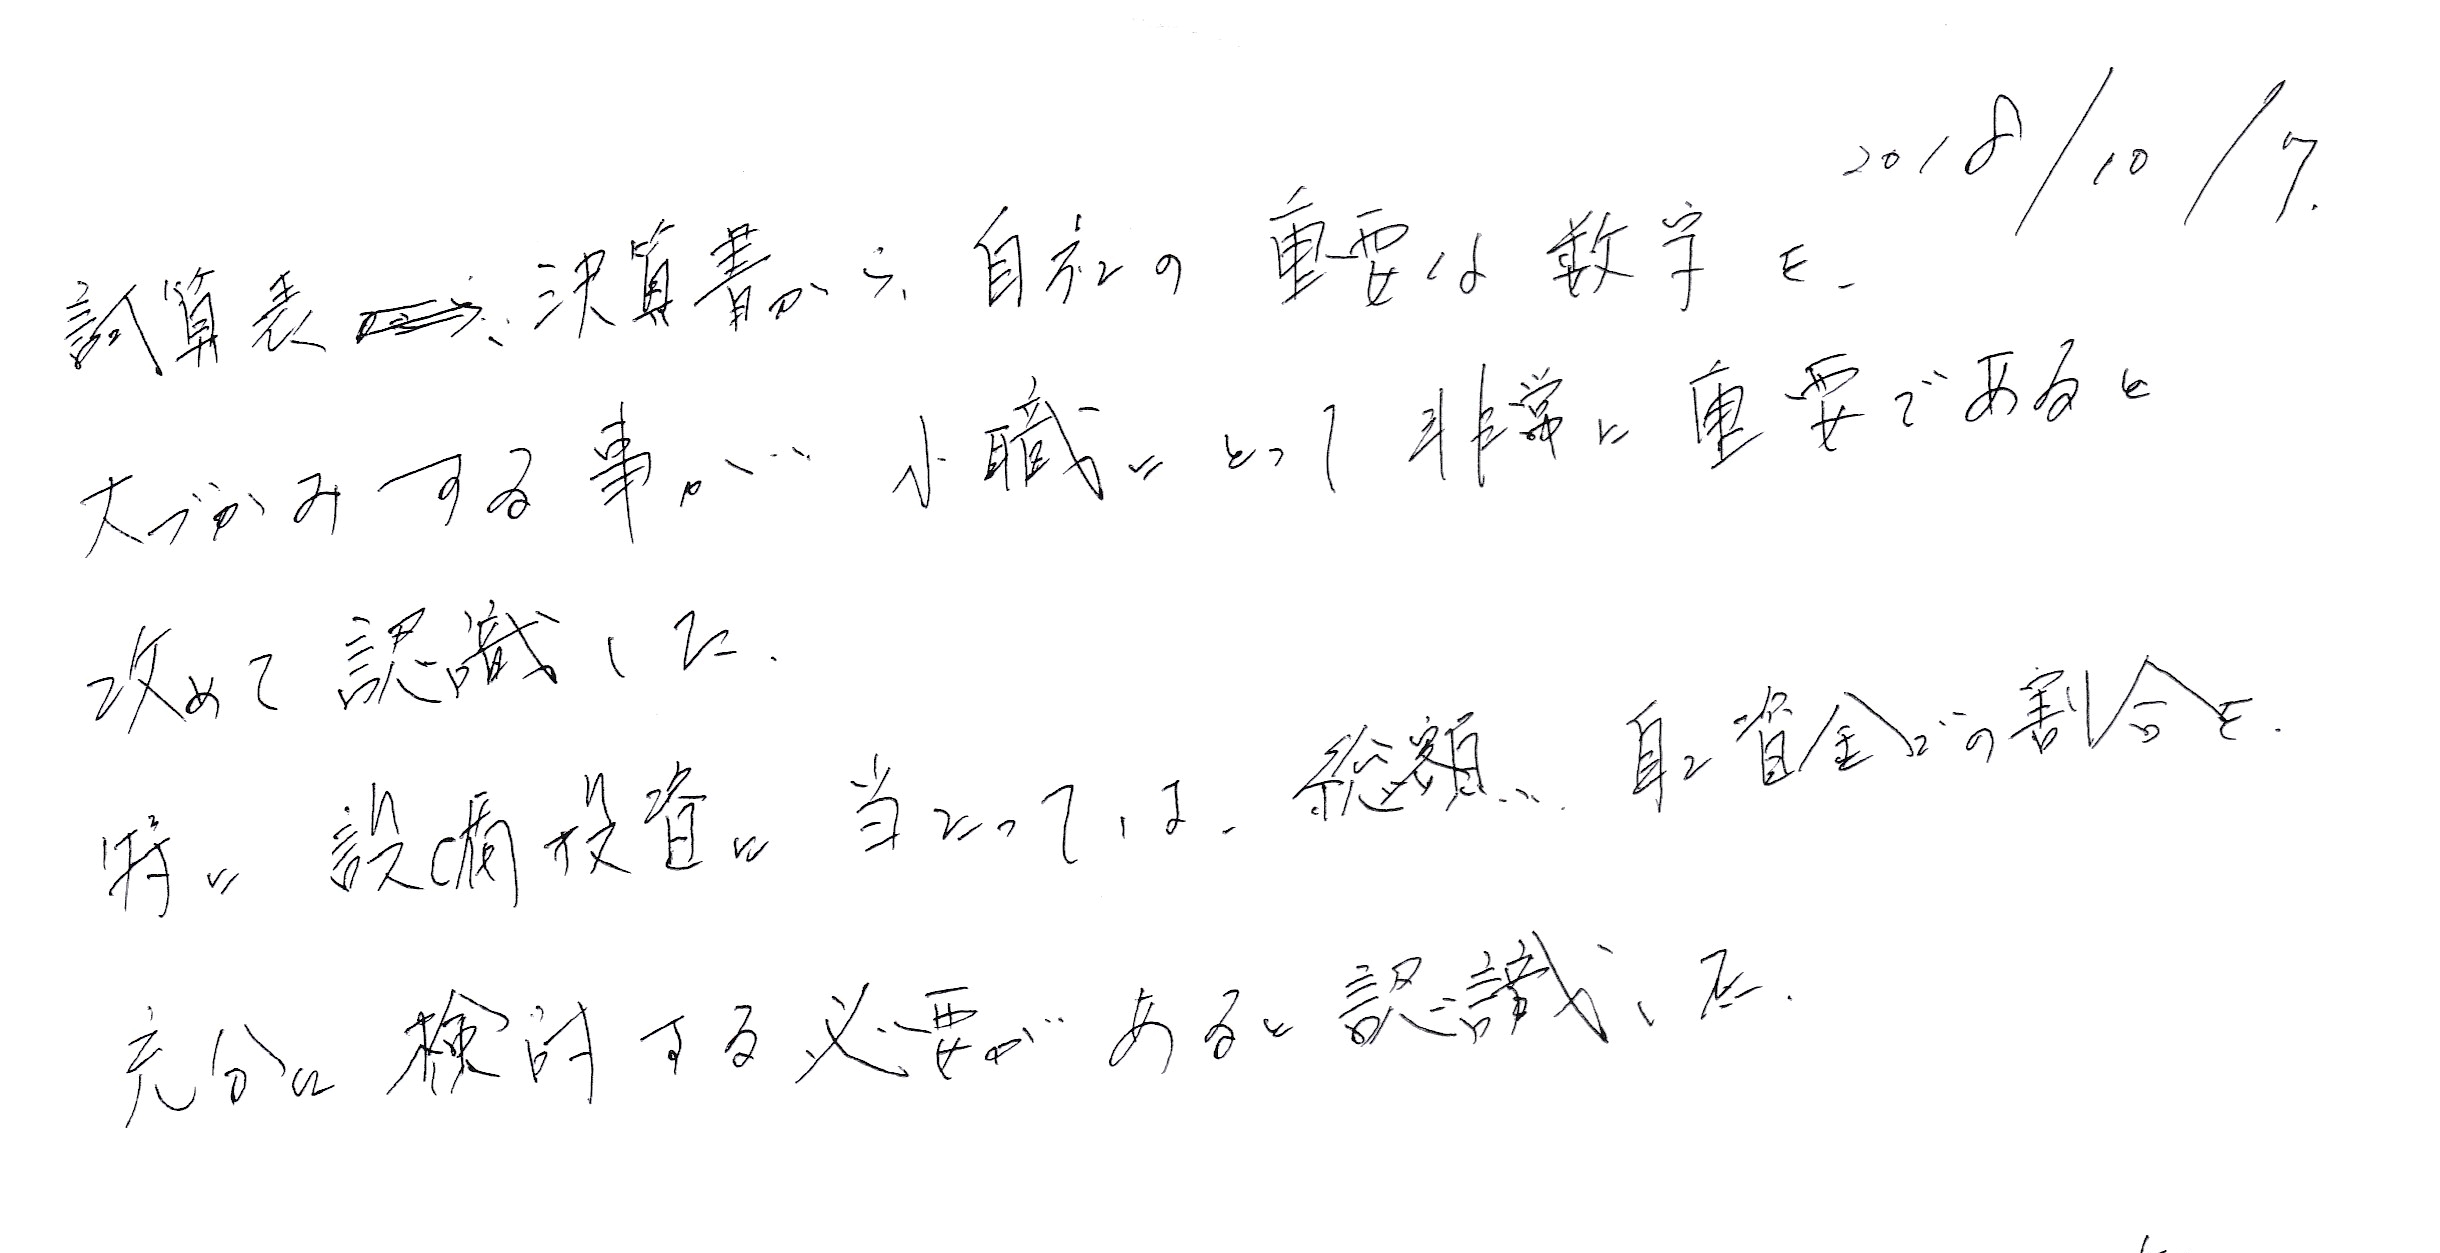 2018/10/7.
試算表、決算書から、自社の重要な数字を、
大づかみする事が、小職にとって非常に重要であると
改めて認識した。
特に設備投資に当たっては、総額、自己資金での割合を、
充分に検討する必要があると認識した。